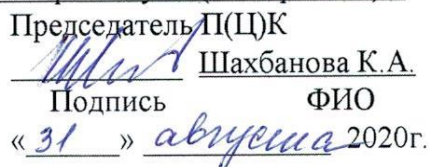 Председатель П(Ц)К
Шахбанова К.А.
Подпись ФИО
« 31 » августа 2020г.